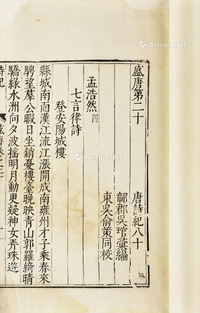 盛唐第二十 唐詩紀八十
鄣郡吳琯彙編
東吳俞策同校
孟浩然四
七言律詩
登安陽城樓
縣城南面漢江流江漲開成南雍州才子乘春來
騁望羣公暇日坐銷憂樓臺晚映青山郭羅綺晴
驕綠水洲向夕波搖明月動更疑神女弄珠遊
詩紀